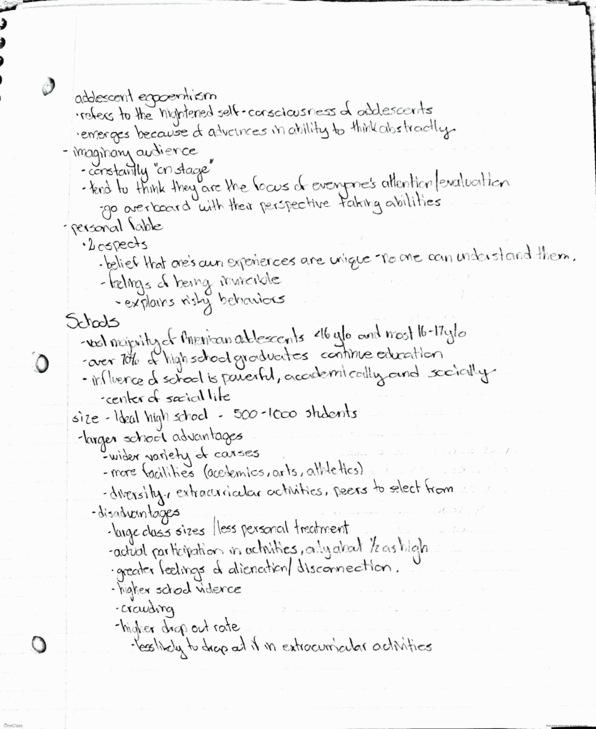 adolescent egocentrism
• refers to the hightened self-consciousness of adolescents
• emerges because of advances in ability to think abstractly
- imaginary audience
- constantly "on stage"
- tend to think they are the focus of everyone's attention/evaluation
- go overboard with their perspective taking abilities
- personal fable
• 2 aspects
- belief that one's own experiences are unique - no one can understand them.
- feelings of being invincible
- explains risky behaviors
Schools
- vast majority of American adolescents <16 y/o and most 16-17 y/o
- over 70% of high school graduates continue education
- influence of school is powerful, academically and socially
- center of social life
size - Ideal high school - 500-1000 students
- larger school advantages
- wider variety of courses
- more facilities (academics, arts, athletics)
- diversity, extracurricular activities, peers to select from
- disadvantages
- large class sizes / less personal treatment
- actual participation in activities, only about 1/2 as high
- greater feelings of alienation/disconnection.
- higher school violence
- crowding
- higher drop out rate
- less likely to drop out if in extracurricular activities
OneClass